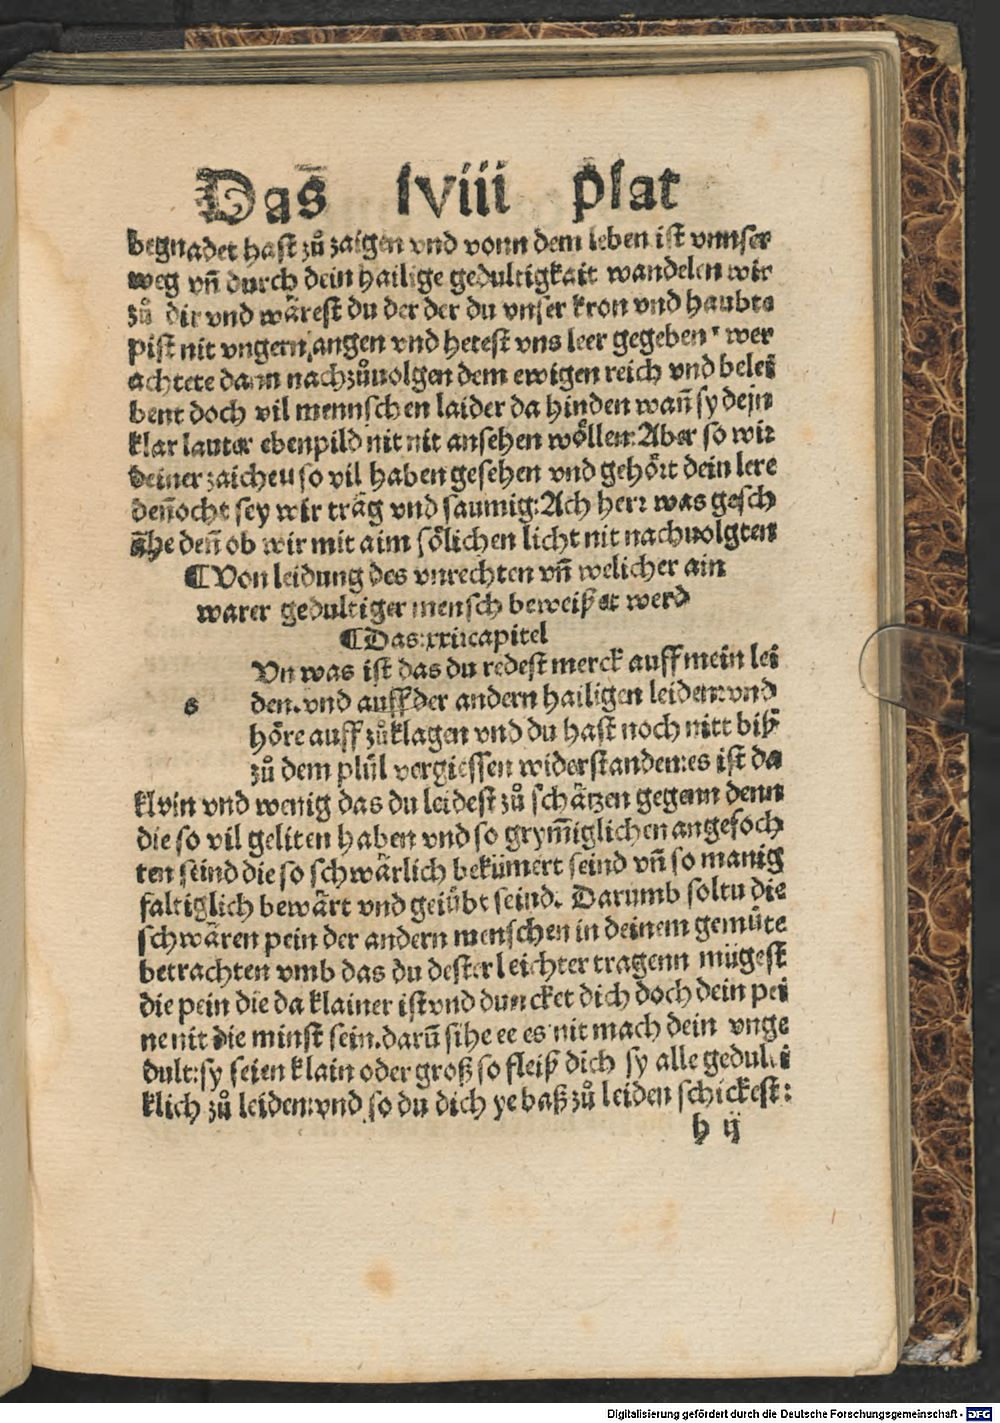 Das̄ lviii plat
begnadet hast zů zaigen vnd vonn dem leben ist vnnser
weg vn̄ durch dein hailige gedultigkait wandelen wir
zů dir vnd wärest du der der du vnser kron vnd haubte
pist nit vngern gangen vnd hetest vns leer gegeben wer
achtete dann nachzůuolgen dem ewigen reich vnd belei
bent doch vil mennschen laider da hinden wan̄ sy dein
klar lauter ebenpild nit nit ansehen wöllen: Aber so wir
deiner zaicheu so vil haben gesehen vnd gehört dein lere
den̄ocht sey wir träg vnd saumig: Ach herr was gesch
ähe den̄ ob wir mit aim sölichen licht nit nachuolgten
¶ Von leidung des vnrechten vn̄ welicher ain
warer gedultiger mensch beweißet werd
¶ Das: xxii: capitel
Vn was ist das du redest merck auff mein lei
s den. vnd auff der andern hailigen leiden: vnd
höre auff zůklagen vnd du hast noch nitt biß
zů dem plůt vergiessen widerstanden: es ist da
klvin vnd wenig das du leidest zů schätzen gegenn denn
die so vil geliten haben vnd so grym̄iglichen angefoch
ten seind die so schwärlich bekümert seind vn̄ so manig
faltiglich bewärt vnd geiůbt seind. Darumb soltu die
schwären pein der andern menschen in deinem gemüte
betrachten vmb das du dester leichter tragenn mügest
die pein die da klainer ist vnd duncket dich doch dein pei
ne nit die minst sein. darū sihe ee es nit mach dein vnge
dult: sy seien klain oder groß so fleiß dich sy alle gedulti
klich zů leiden: vnd so du dich ye baß zů leiden schickest:
h ij
Digitalisierung gefördert durch die Deutsche Forschungsgemeinschaft - DFG